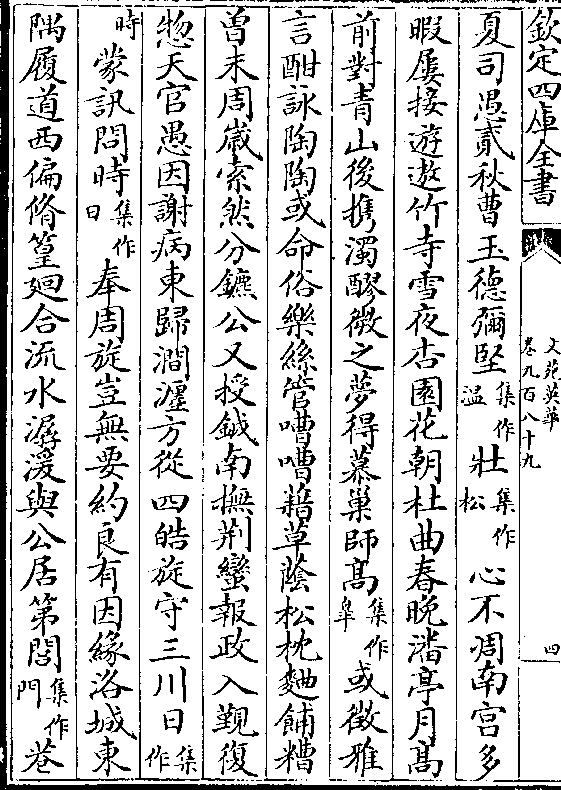 欽定四庫全書
文苑英華
卷九百八十九
四
夏司憑貳秋曹玉德彌堅集作溫壯集作松心不凋南宫多
暇屢接遊遨竹寺雪夜杏園花朝杜曲春晚潘亭月髙
前對青山後携濁醪微之夢得慕巢師髙集作臯或徴雅
言酣詠陶陶或命俗樂絲管嘈嘈藉草蔭松枕麯餔糟
曽未周嵗索然分鑣公又授鉞南撫荆蠻報政入覲復
惣天官愚因謝病東歸澗瀍方從四皓旋守三川日集作
時蒙訊問時集作日奉周旋豈無要約良有因緣洛城東
隅履道西偏脩篁廻合流水潺湲與公居第閭集作門巷